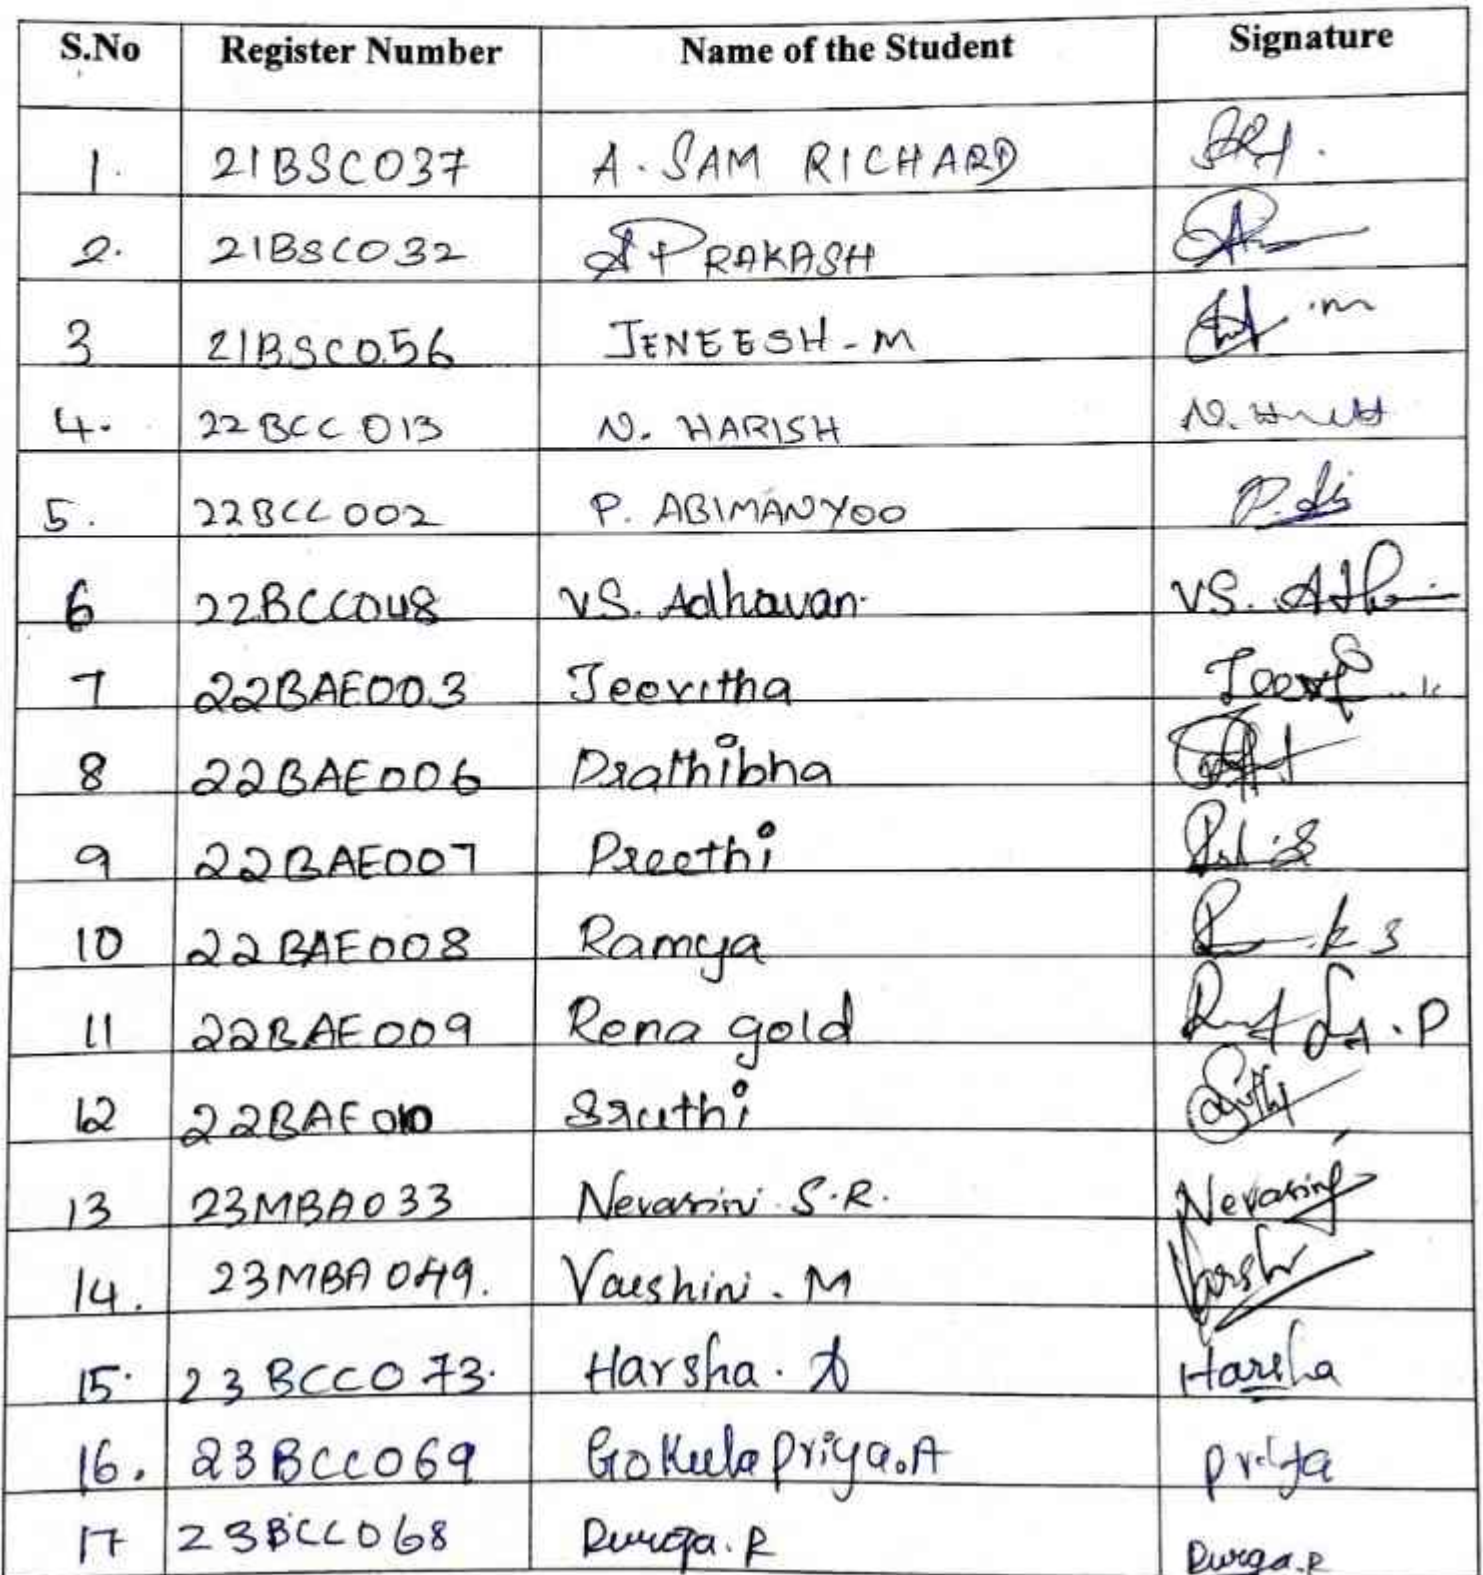 S.No Register Number Name of the Student Signature
1. 21BSC037 A. SAM RICHARD
2. 21BSC032 PRAKASH
3 21BSC056 JENEESH-M .m
4. 22BCC013 N. HARISH N.
5. 22BCC002 P. ABIMANYOO P.
6 22BCC048 VS. Adhavan. VS.
7 22BAE003 Jeevitha
8 22BAE006 Prathibha
9 22BAE007 Preethi
10 22BAE008 Ramya
11 22BAE009 Rena gold
12 22BAE010 Sruthi
13 23MBA033 Nevasini S.R. Nevasini
14. 23MBA049. Varshini. M
15. 23BCC073. Harsha. A Harsha
16. 23BCC069 Gokula Priya.A Priya
17 23BCC068 Durga.R Durga.R